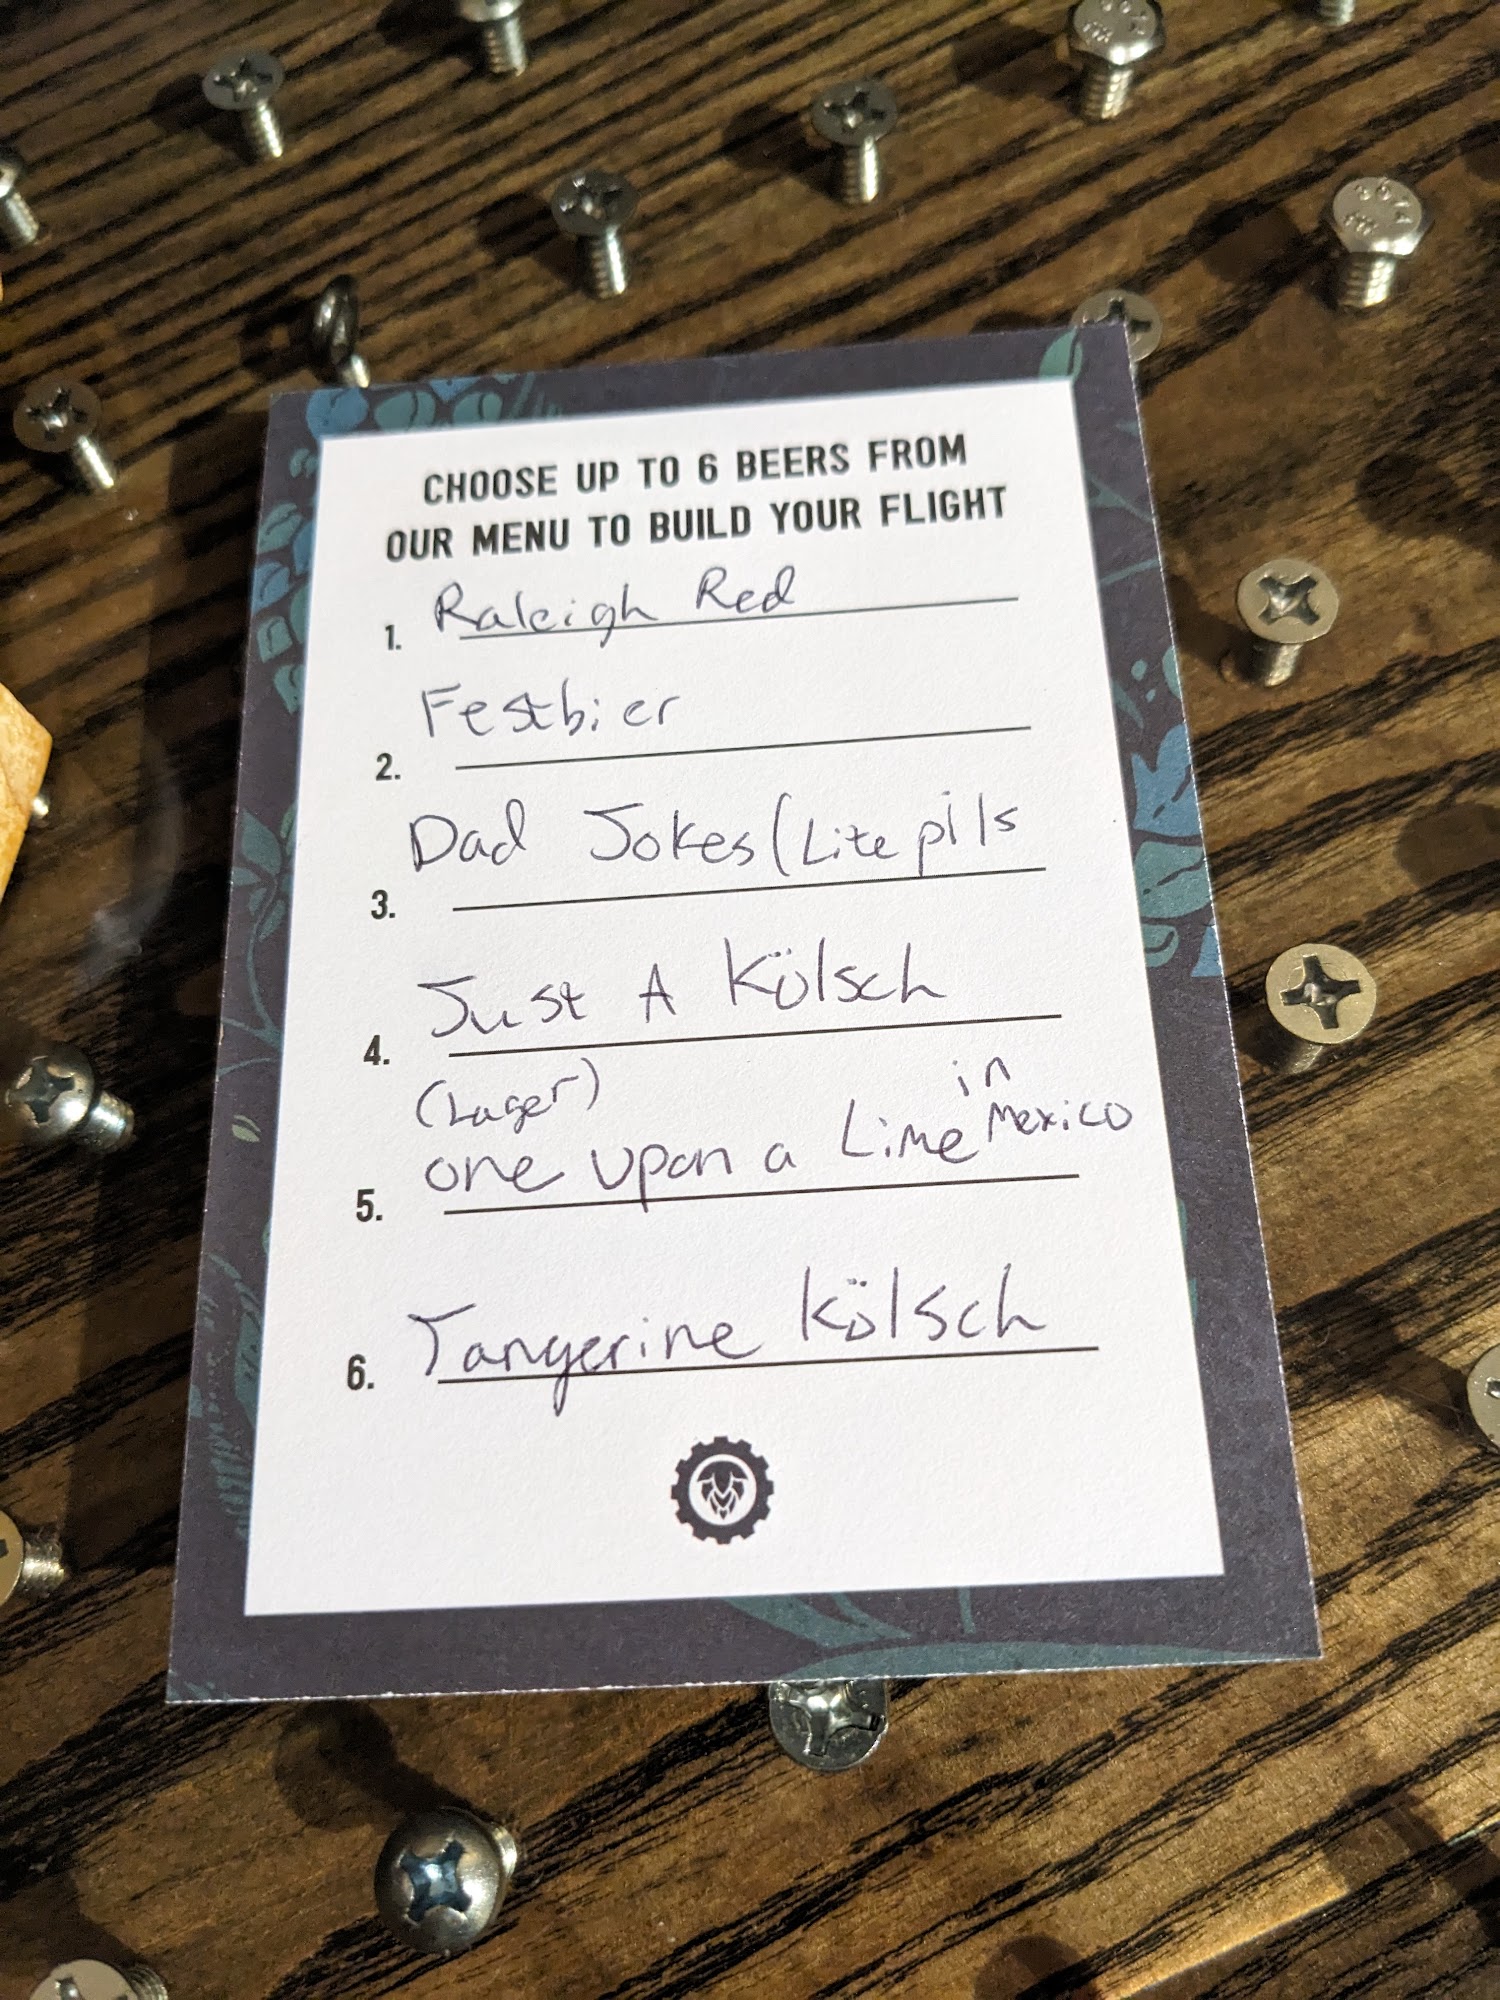 CHOOSE UP TO 6 BEERS FROM
OUR MENU TO BUILD YOUR FLIGHT
1. Raleigh Red
2. Festbier
3. Dad Jokes (Lite pils
4. Just A Kölsch
(Lager)
5. one upon a Lime in Mexico
6. Tangerine Kölsch